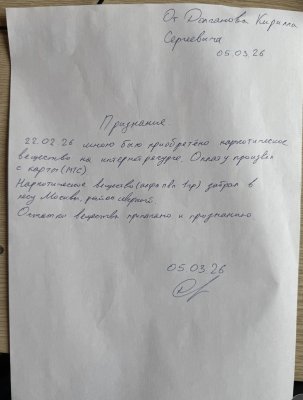 От Долганова Кирилла
Сергеевича
05.03.26
Признание
22.02.26 мною было приобретено наркотическое
вещество на интернет ресурсе. Оплату произвёл
с карты (МТС)
Наркотическое вещество (альфа пвп 1гр) забрал в
лесу Москвы, район северный.
Остатки вещества прилагаю к признанию
05.03.26